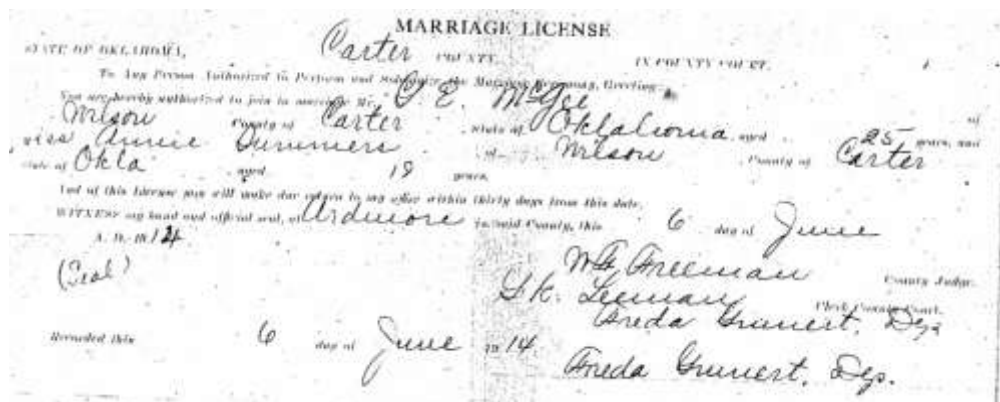 MARRIAGE LICENSE
STATE OF OKLAHOMA, Carter COUNTY. IN COUNTY COURT.
To Any Person Authorized to Perform and Solemnize the Marriage Ceremony, Greeting:
You are hereby authorized to join in marriage Mr. C. E. McGee of
Wilson County of Carter State of Oklahoma aged 25 years, and
Miss Annie Summers of Wilson County of Carter
State of Okla aged 18 years.
And of this License you will make due return to my office within thirty days from this date.
WITNESS my hand and official seal, at Ardmore in said County, this 6 day of June
A. D. 1914
(Seal) W F Freeman County Judge.
S. K. Leeman Clerk County Court.
Freda Grunert, Dep
Recorded this 6 day of June 1914.
Freda Grunert, Dep.